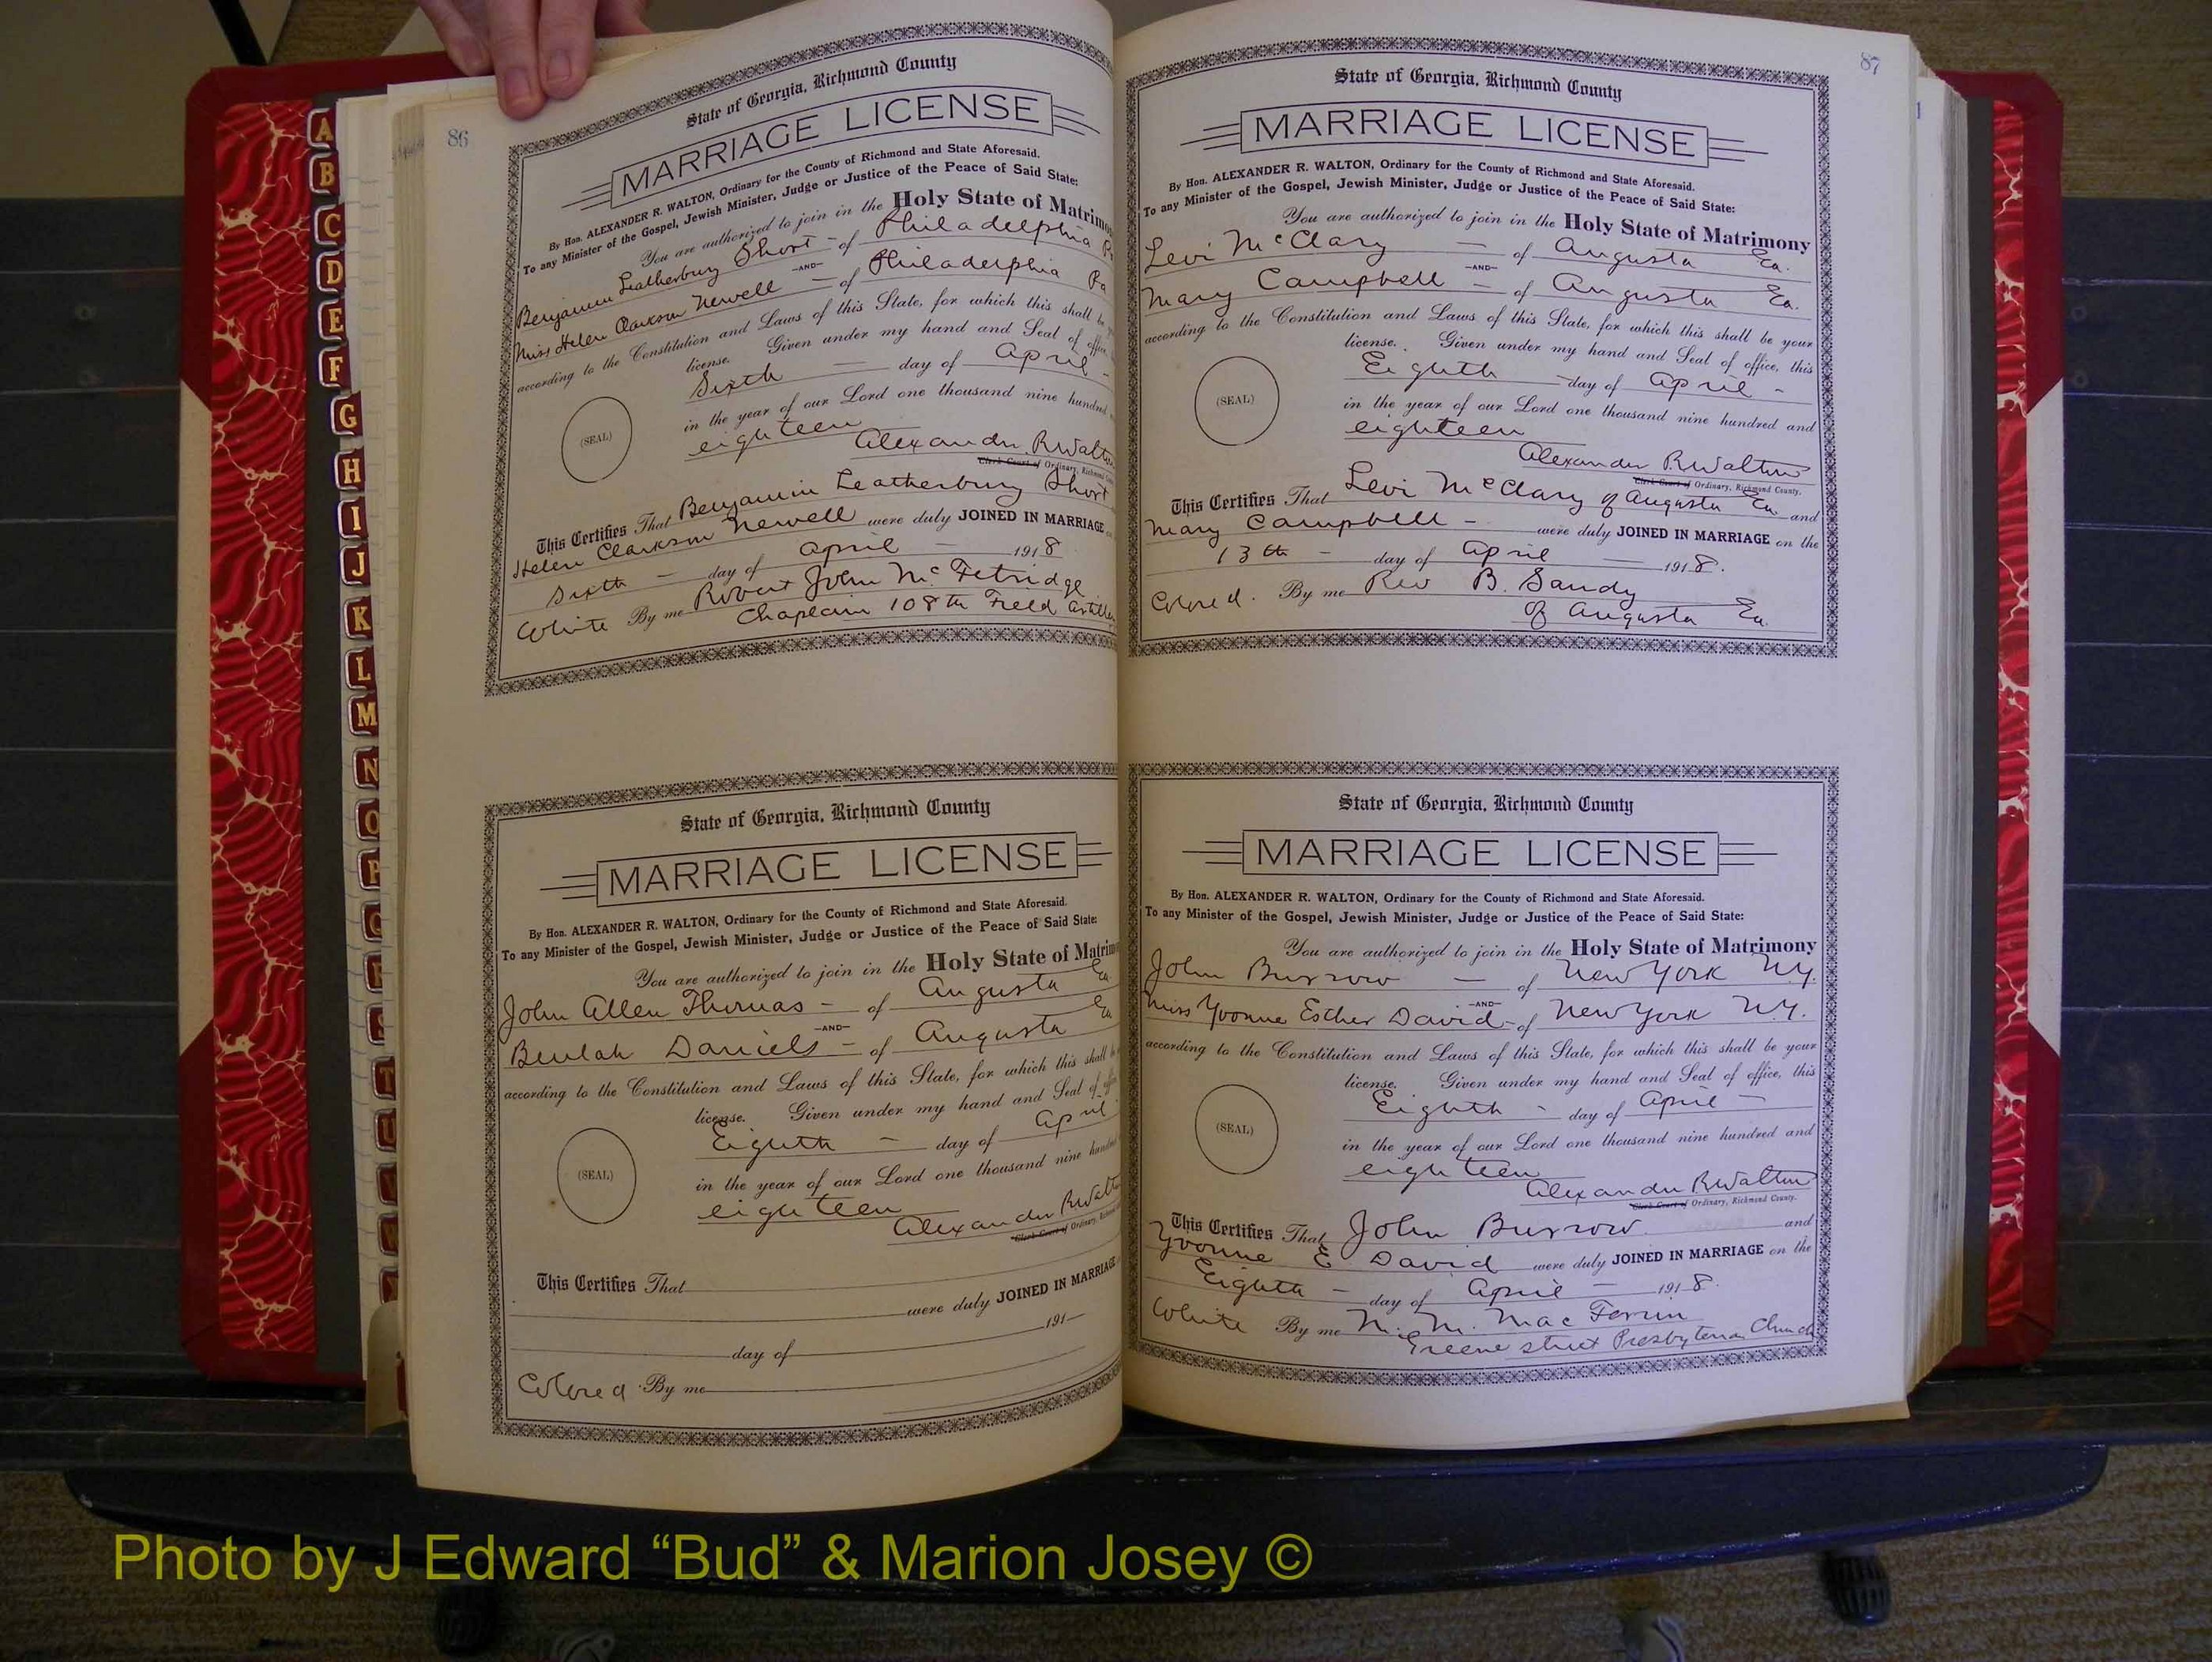 86
State of Georgia, Richmond County
MARRIAGE LICENSE
By Hon. ALEXANDER R. WALTON, Ordinary for the County of Richmond and State Aforesaid.
To any Minister of the Gospel, Jewish Minister, Judge or Justice of the Peace of Said State:
You are authorized to join in the Holy State of Matrimo
Benjamin Leatherbury Short - of Philadelphia
-AND-
Miss Helen Clarkson Newell - of Philadelphia Pa
according to the Constitution and Laws of this State, for which this shall be
license. Given under my hand and Seal of office,
Sixth day of April -
(SEAL)
in the year of our Lord one thousand nine hundred
eighteen
Alexander R Walton
Clerk Court of Ordinary, Richmond
This Certifies That Benjamin Leatherbury Short
Helen Clarkson Newell were duly JOINED IN MARRIAGE
Sixth - day of April - 1918
White By me Robert John McFetridge
Chaplain 108th Field Artiller
State of Georgia, Richmond County
MARRIAGE LICENSE
By Hon. ALEXANDER R. WALTON, Ordinary for the County of Richmond and State Aforesaid.
To any Minister of the Gospel, Jewish Minister, Judge or Justice of the Peace of Said State:
You are authorized to join in the Holy State of Matrim
John Allen Thomas - of Augusta Ga
-AND-
Beulah Daniels - of Augusta Ga
according to the Constitution and Laws of this State, for which this shall be
license. Given under my hand and Seal of
Eighth - day of April
(SEAL)
in the year of our Lord one thousand nine hundred
eighteen
Alexander R Walton
Clerk Court of Ordinary,
This Certifies That
were duly JOINED IN MARRIAGE
day of 191-
Colored By me
87
State of Georgia, Richmond County
MARRIAGE LICENSE
By Hon. ALEXANDER R. WALTON, Ordinary for the County of Richmond and State Aforesaid.
To any Minister of the Gospel, Jewish Minister, Judge or Justice of the Peace of Said State:
You are authorized to join in the Holy State of Matrimony
Levi McClary - of Augusta Ga.
-AND-
Mary Campbell - of Augusta Ga.
according to the Constitution and Laws of this State, for which this shall be your
license. Given under my hand and Seal of office, this
Eighth - day of April -
(SEAL)
in the year of our Lord one thousand nine hundred and
eighteen
Alexander R Walton
Clerk Court of Ordinary, Richmond County.
This Certifies That Levi McClary of Augusta Ga and
Mary Campbell - were duly JOINED IN MARRIAGE on the
13th - day of April - 1918.
Colored. By me Rev B. Sandy
of Augusta Ga.
State of Georgia, Richmond County
MARRIAGE LICENSE
By Hon. ALEXANDER R. WALTON, Ordinary for the County of Richmond and State Aforesaid.
To any Minister of the Gospel, Jewish Minister, Judge or Justice of the Peace of Said State:
You are authorized to join in the Holy State of Matrimony
John Burrow - of New York N.Y.
-AND-
Miss Yvonne Esther David - of New York N.Y.
according to the Constitution and Laws of this State, for which this shall be your
license. Given under my hand and Seal of office, this
Eighth - day of April -
(SEAL)
in the year of our Lord one thousand nine hundred and
eighteen
Alexander R Walton
Clerk Court of Ordinary, Richmond County.
This Certifies That John Burrow and
Yvonne E David were duly JOINED IN MARRIAGE on the
Eighth - day of April - 1918
White By me M. M. Mac Ferrin
Greene street Presbyterian Church
A
B
C
D
E
F
G
H
I
J
K
L
M
N
O
P
Q
R
S
T
U
Photo by J Edward “Bud” & Marion Josey ©